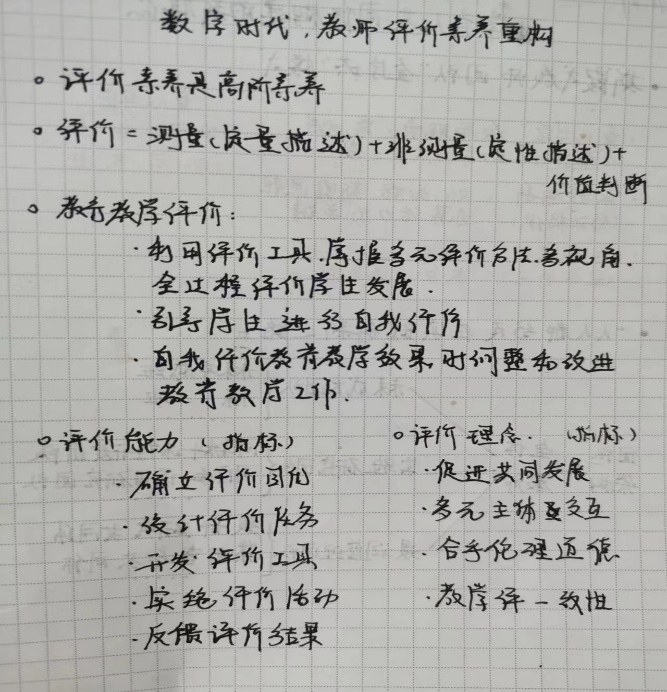 数字时代,教师评价素养重构
○ 评价素养是高阶素养
○ 评价=测量(定量描述)+非测量(定性描述)+
价值判断
○ 教育教学评价:
· 利用评价工具,掌握多元评价方法,多视角,
全过程评价学生发展.
· 引导学生进行自我评价
· 自我评价教育教学效果,时调整和改进
教育教学工作.
○ 评价能力(指标)
· 确立评价目的
· 设计评价任务
· 开发评价工具
· 实施评价活动
· 反馈评价结果
○ 评价理念.(指标)
· 促进共同发展
· 多元主体交互
· 合乎伦理道德
· 教学评一致性